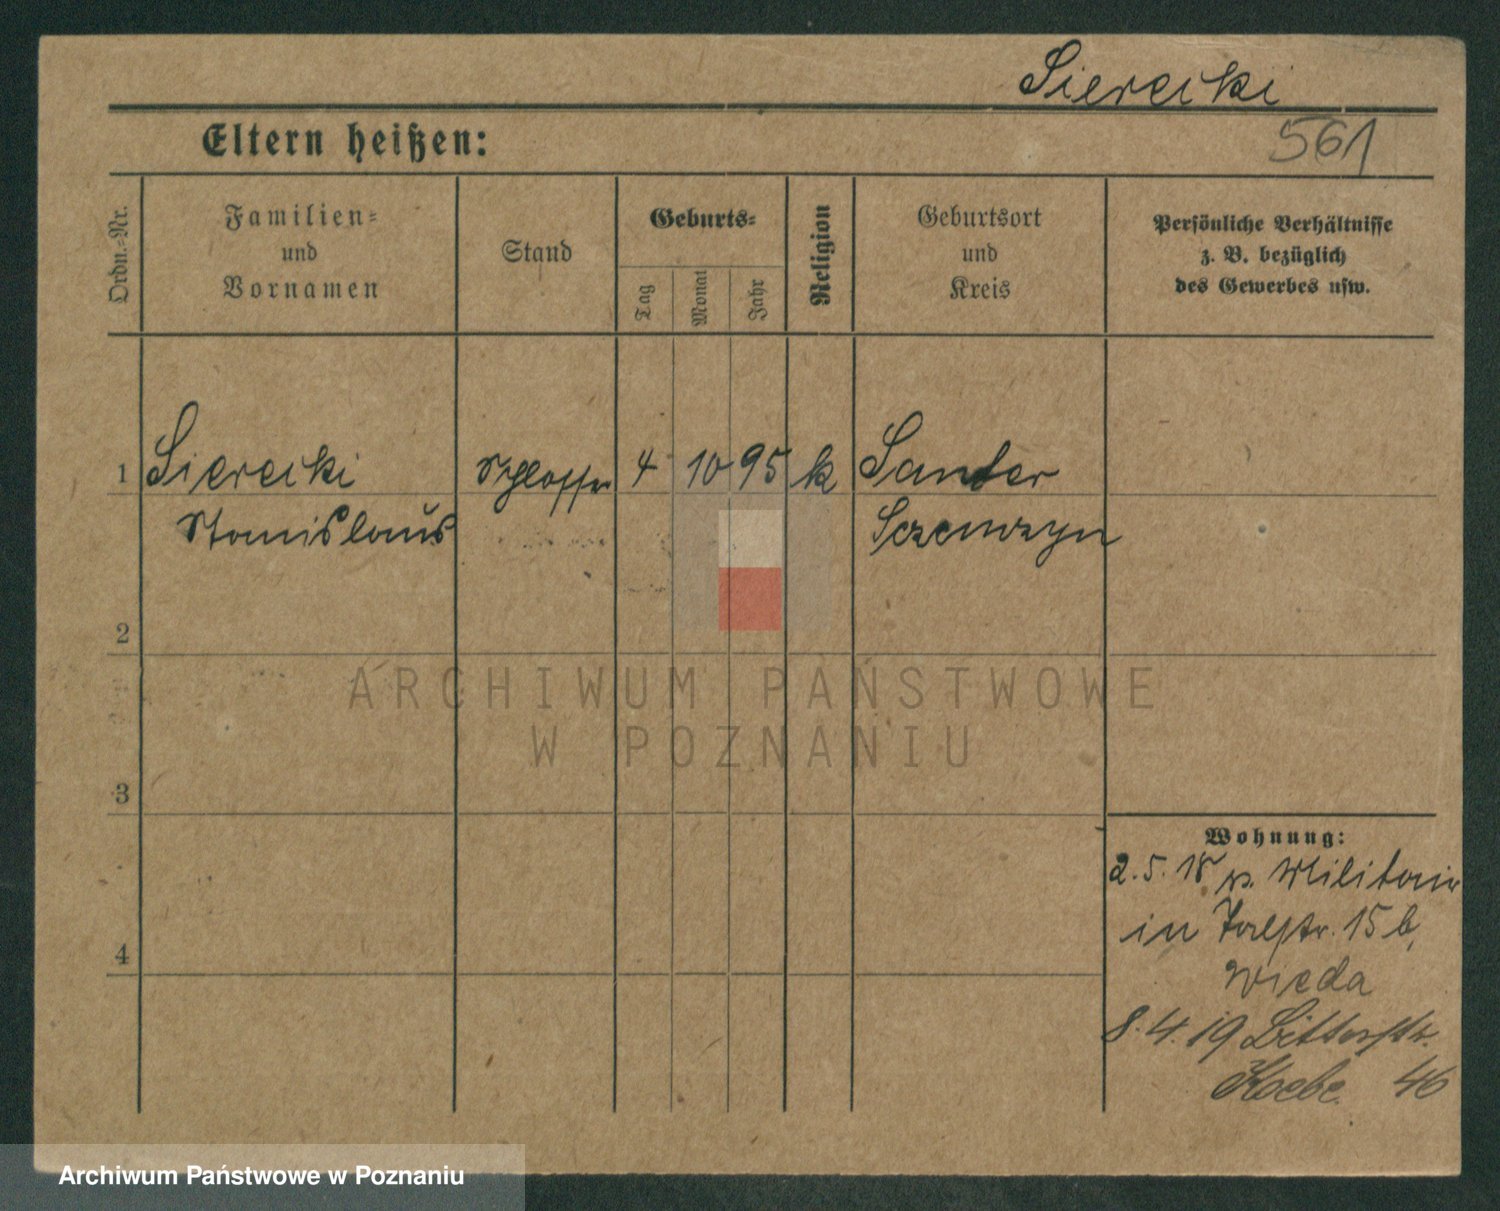 Sierecki
561
Eltern heißen:
Ordn.=Nr.
Familien=
und
Vornamen
Stand
Geburts=
Tag
Monat
Jahr
Religion
Geburtsort
und
Kreis
Persönliche Verhältnisse
z. B. bezüglich
des Gewerbes usw.
1 Sierecki Schlosser 4 10 95 k Santer
Stanislaus
2
3
4
ARCHIWUM PAŃSTWOWE
W POZNANIU
Wohnung:
2.5.18 v. Militair
in 15b,
Wieda
8.4.19
46
Archiwum Państwowe w Poznaniu